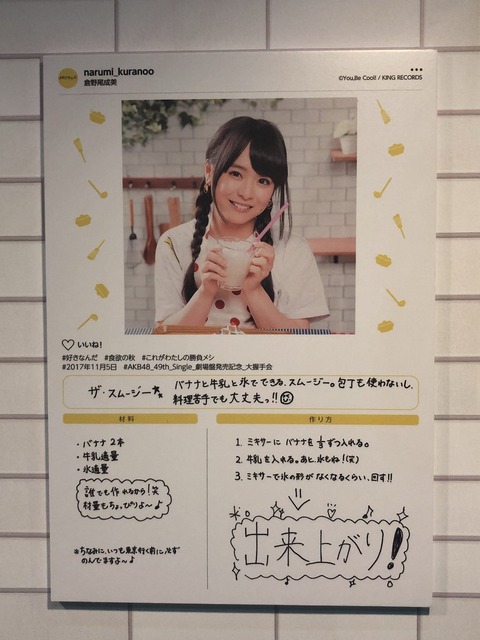 narumi_kuranoo
倉野尾成美
©You,Be Cool! / KING RECORDS
いいね!
#好きなんだ #食欲の秋 #これがわたしの勝負メシ
#2017年11月5日 #AKB48_49th_Single_劇場盤発売記念_大握手会
ザ・スムージー
バナナと牛乳と氷でできる、スムージー。包丁も使わないし、
料理苦手でも大丈夫っ!!
材料
・バナナ2本
・牛乳適量
・氷適量
誰でも作れるから!笑
材量もちょっぴりよ〜♪
※ちなみに、いつも東京行く前に、必ず
のんでますよ〜♪
作り方
1. ミキサーにバナナを1/3ずつ入れる。
2. 牛乳を入れる。あと、氷もね!(笑)
3. ミキサーで氷の形がなくなるくらい、回す!!
出来上がり!